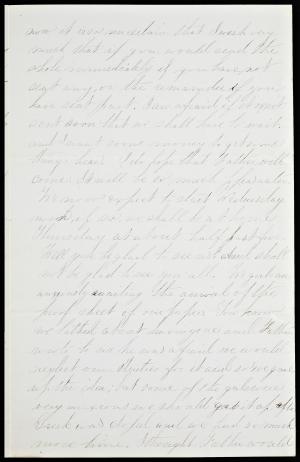 now it is so uncertain that I wish very
much that if you would send the
whole immediately if you have not
sent any, or the remainder if you
have sent part. I am afraid if it is not
sent soon that we shall have to wait
and I want some money to get some
things here. I do hope that Father will
come. It will be so much pleasanter.
We now expect to start Wednesday
morn, if so, we shall be at home
Thursday at about half past five.
Will you be glad to see us? I shall
not be glad to see you all. We girls are
anxiously awaiting the arrival of the
proof sheet of our paper. You know
we talked about having one and Father
wrote to me he was afraid we would
neglect our studies for it and so we gave
up the idea; but some of the girls were
very anxious we should get it up after
Greek was dropped and we had so much
more time. I thought Father would